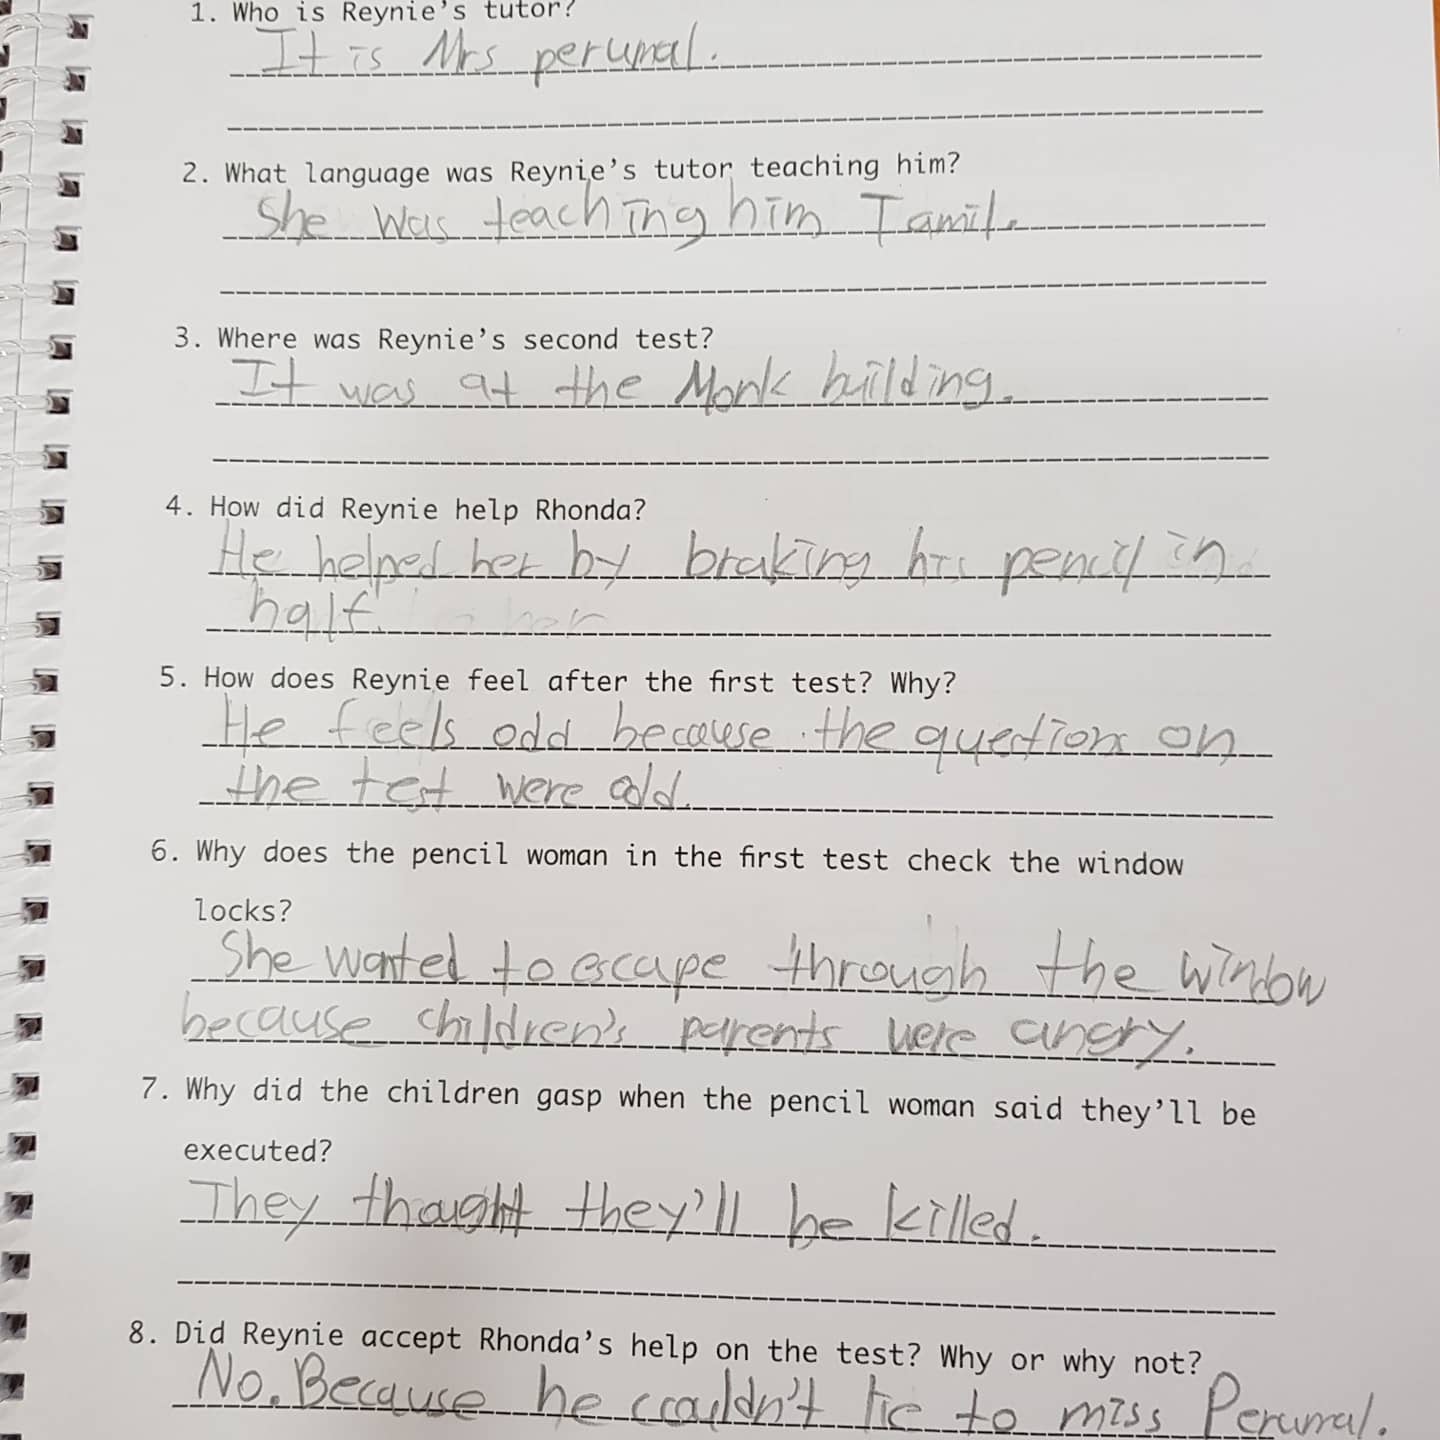 1. Who is Reynie's tutor?
It is Mrs perumal.
2. What language was Reynie's tutor teaching him?
She was teaching him Tamil.
3. Where was Reynie's second test?
It was at the Monk building.
4. How did Reynie help Rhonda?
He helped her by braking his pencil in
half.
5. How does Reynie feel after the first test? Why?
He feels odd because the questions on
the test were odd.
6. Why does the pencil woman in the first test check the window
locks?
She wanted to escape through the window
because children's parents were angry.
7. Why did the children gasp when the pencil woman said they'll be
executed?
They thought they'll be killed.
8. Did Reynie accept Rhonda's help on the test? Why or why not?
No. Because he couldn't lie to miss Perumal.